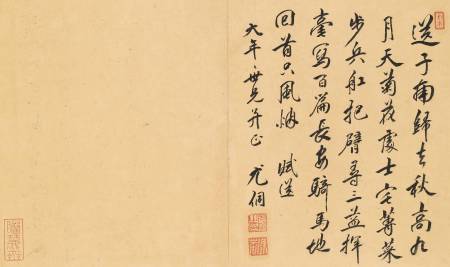 送子南歸去秋高九
月天菊花處士宅蓴菜
步兵舡把臂尋三益揮
毫寫百篇長安騎馬地
回首只風烟 賦送
大年世兄并正 尤侗